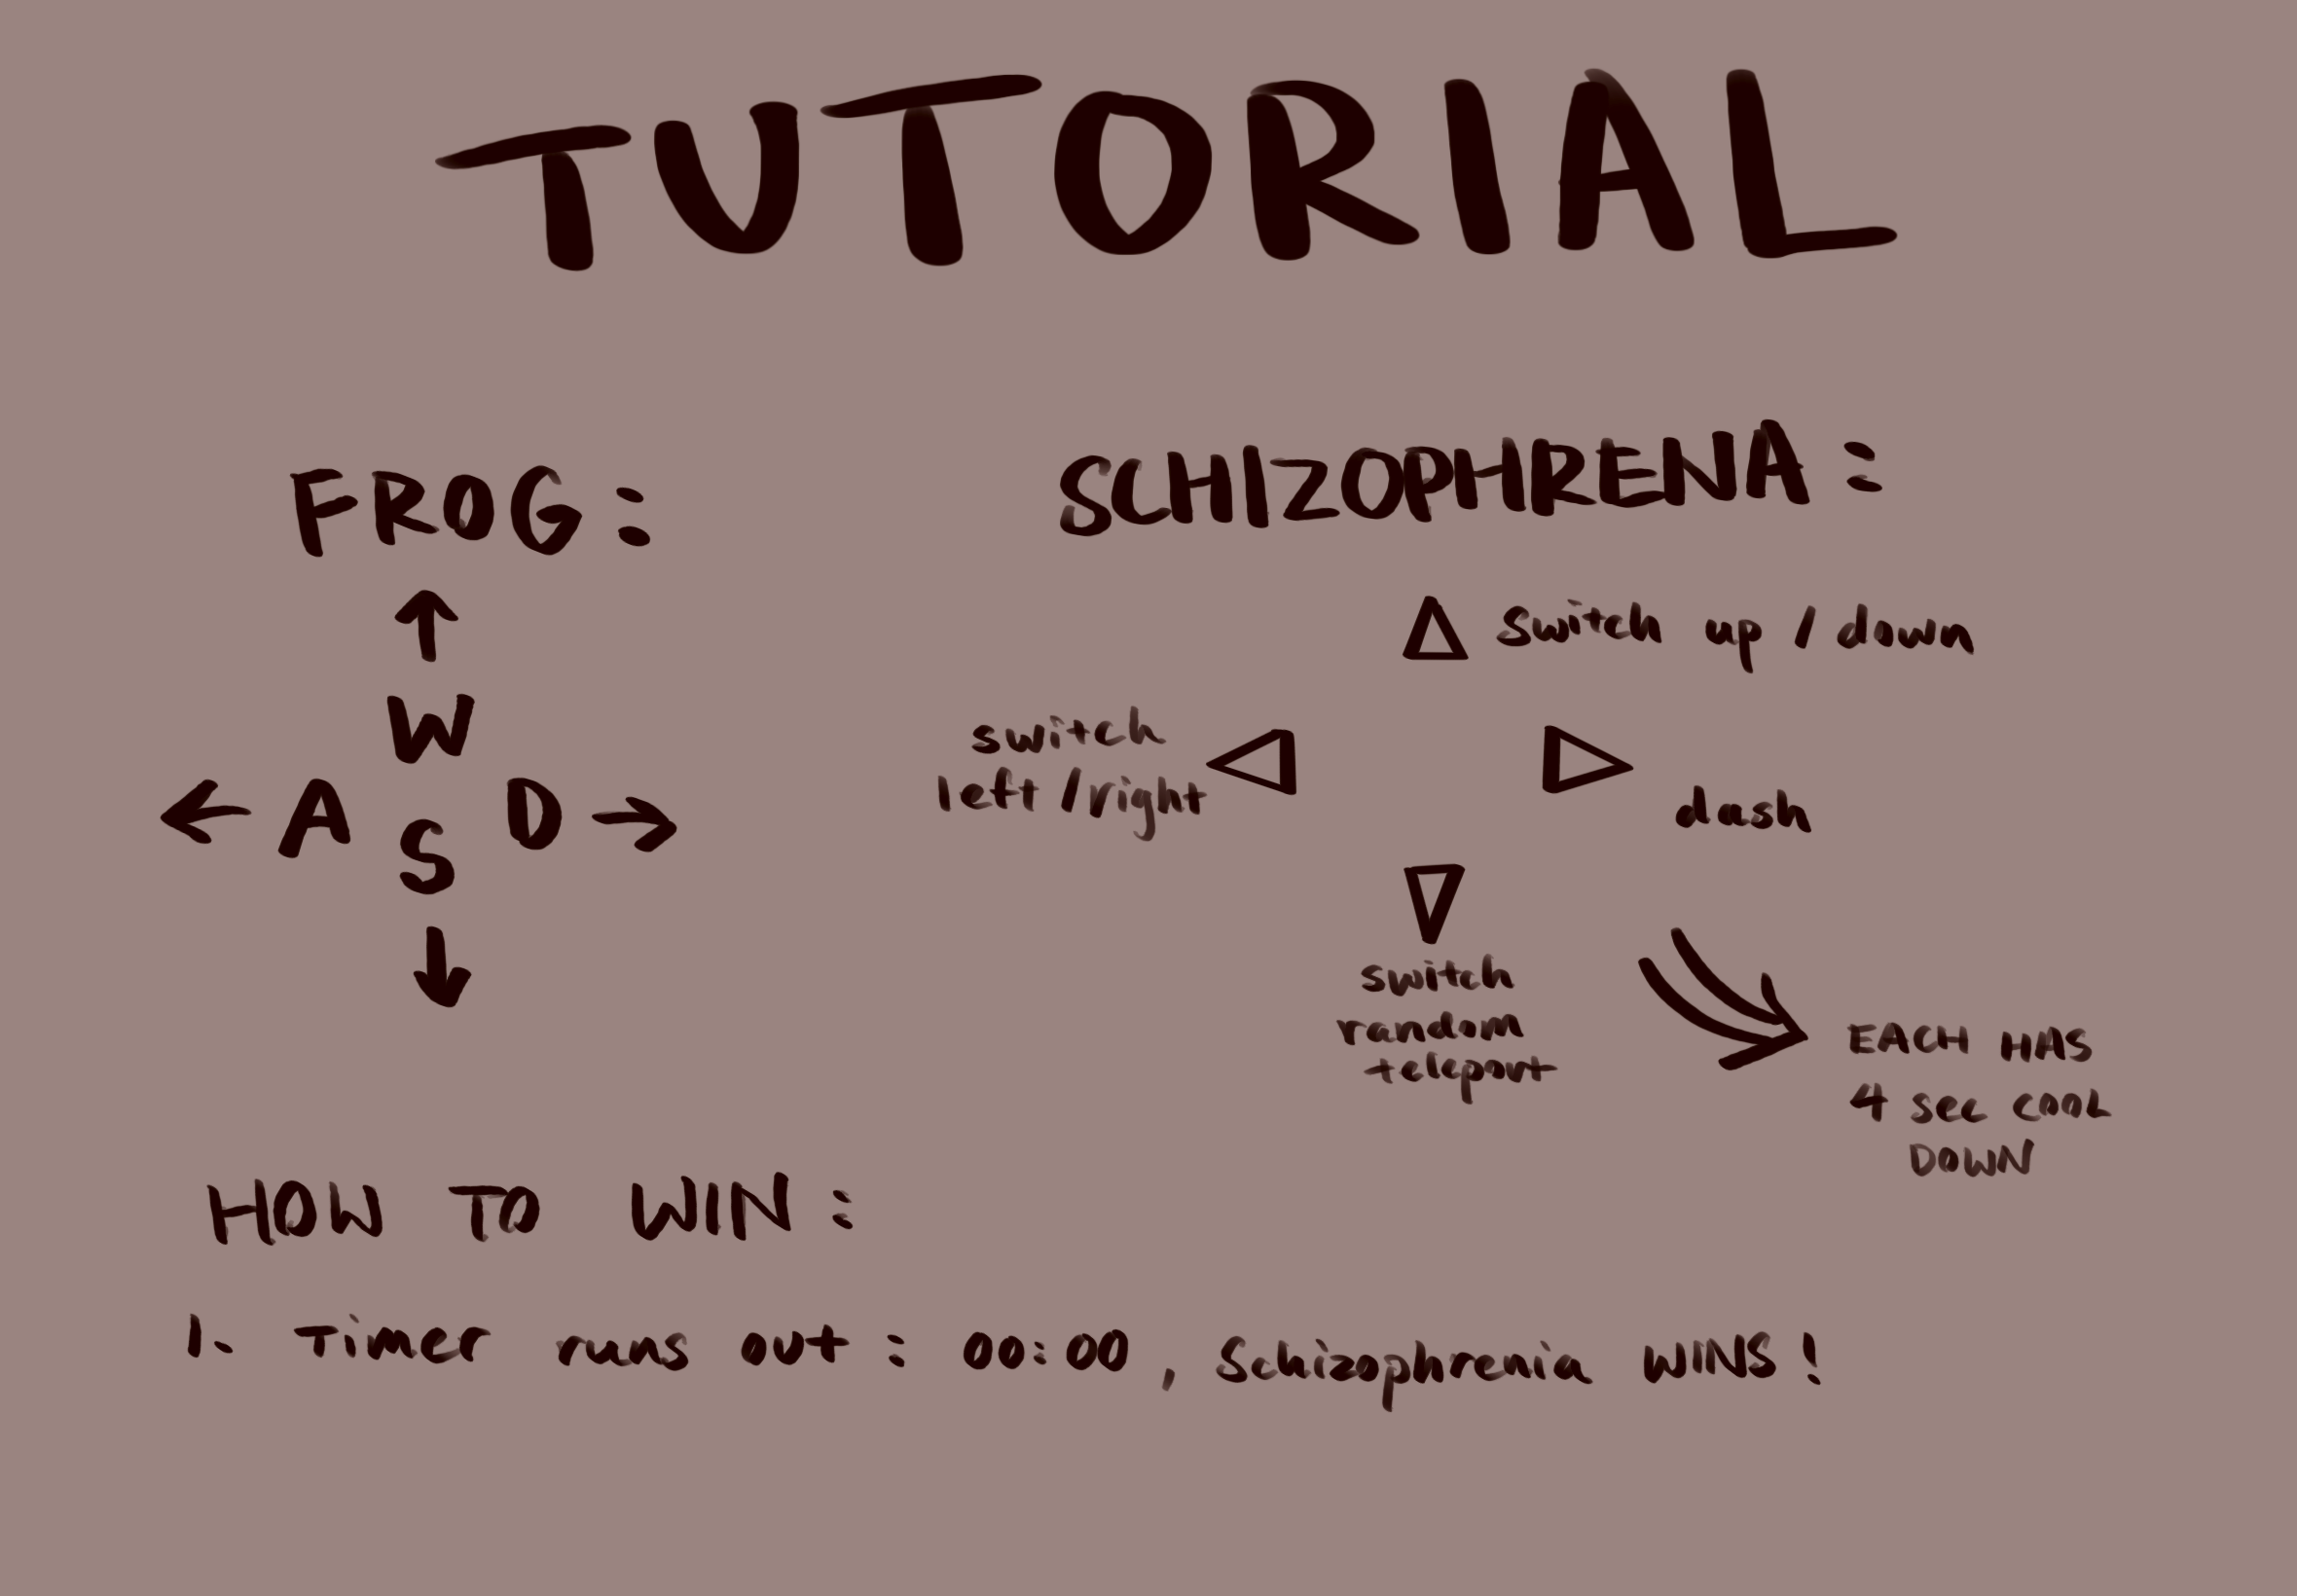 TUTORIAL
FROG:
W
A
S
D
SCHIZOPHRENA:
switch up / down
switch
left / right
dash
switch
random
teleport
EACH HAS
4 sec cool
DOWN
HOW TO WIN:
1. Timer runs out: 00:00, Schizophrenia WINS!